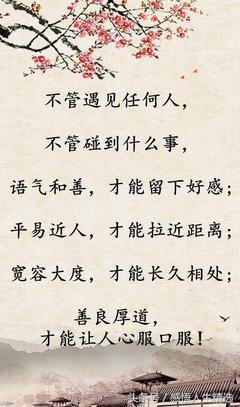 不管遇见任何人，
不管碰到什么事，
语气和善，才能留下好感；
平易近人，才能拉近距离；
宽容大度，才能长久相处；
善良厚道，
才能让人心服口服！
头条号 / 感悟人生精选